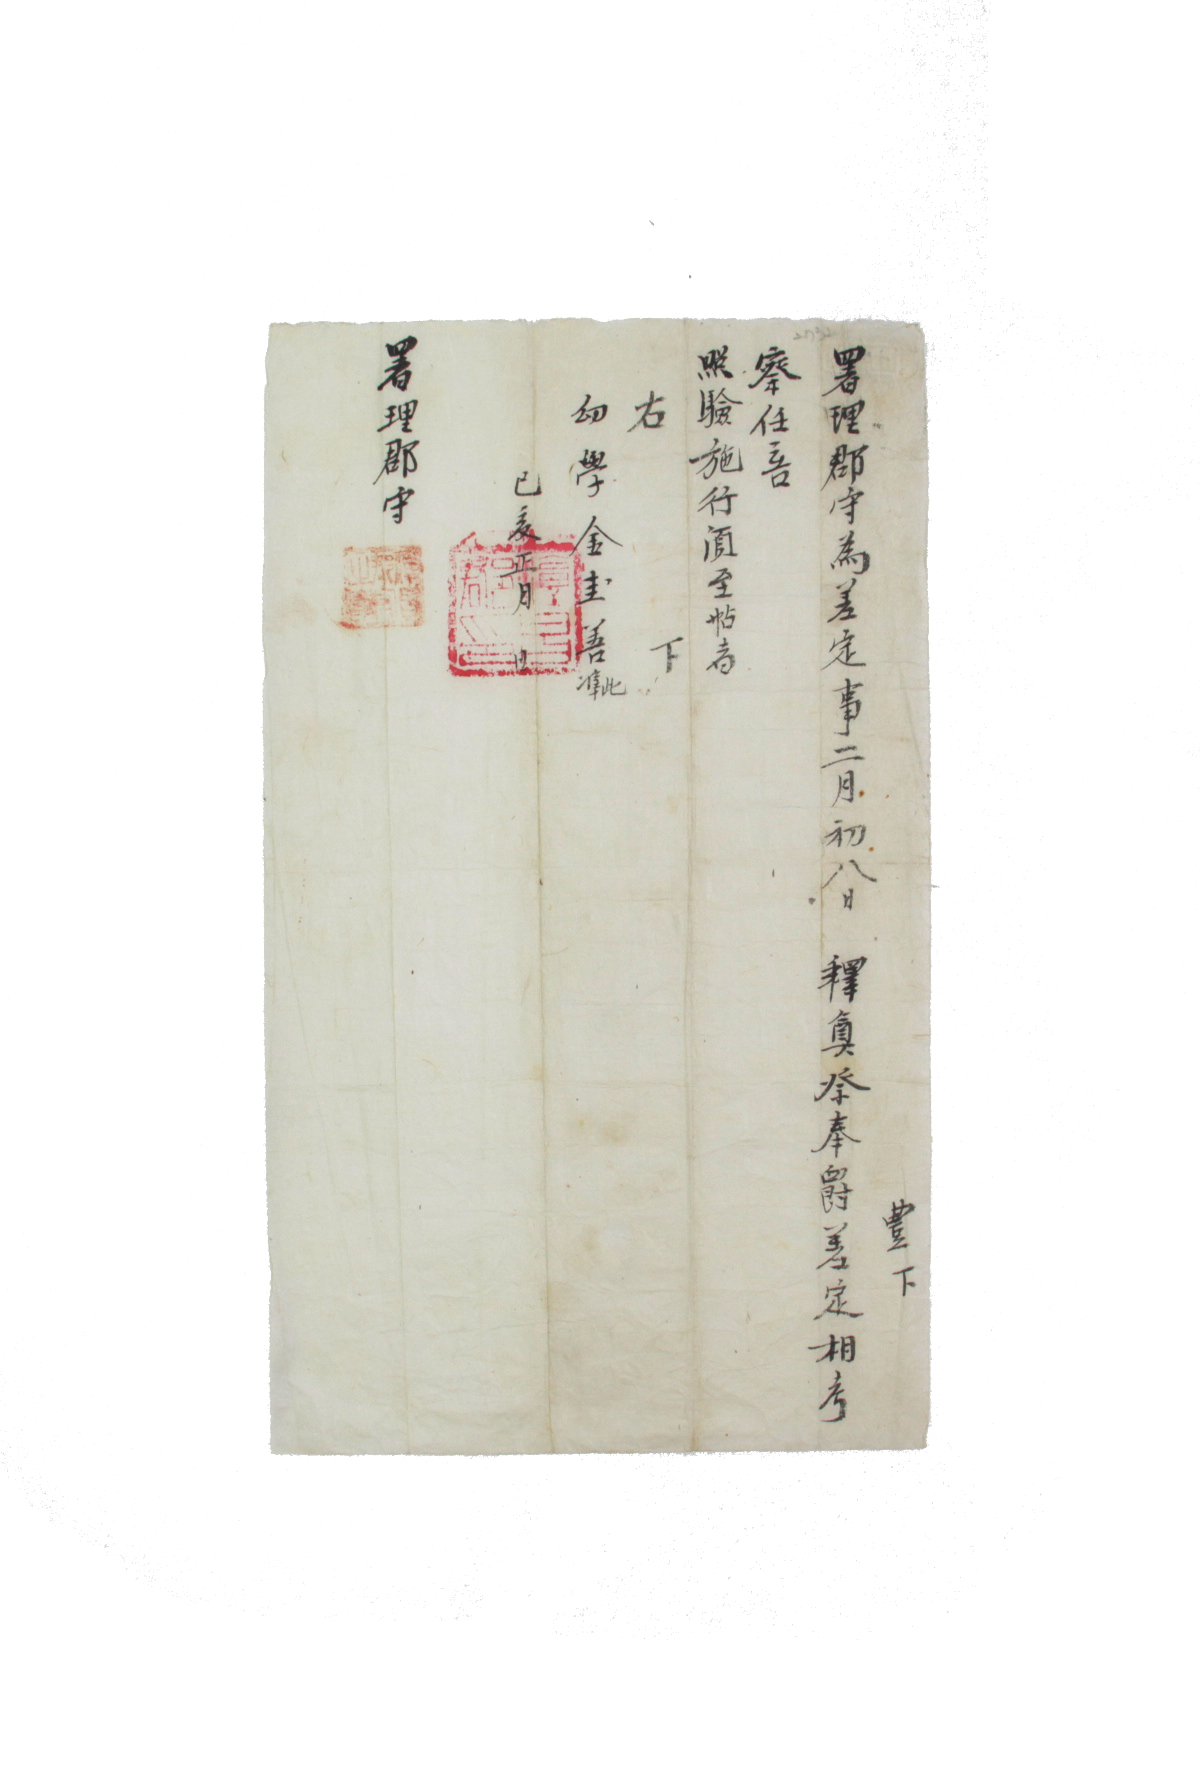 豊下
署理郡守為差定事二月初八日 釋奠祭奉爵差定相考
察任
照驗施行須至帖者
右 下
幼學金圭善 準此
己亥正月 日
署理郡守